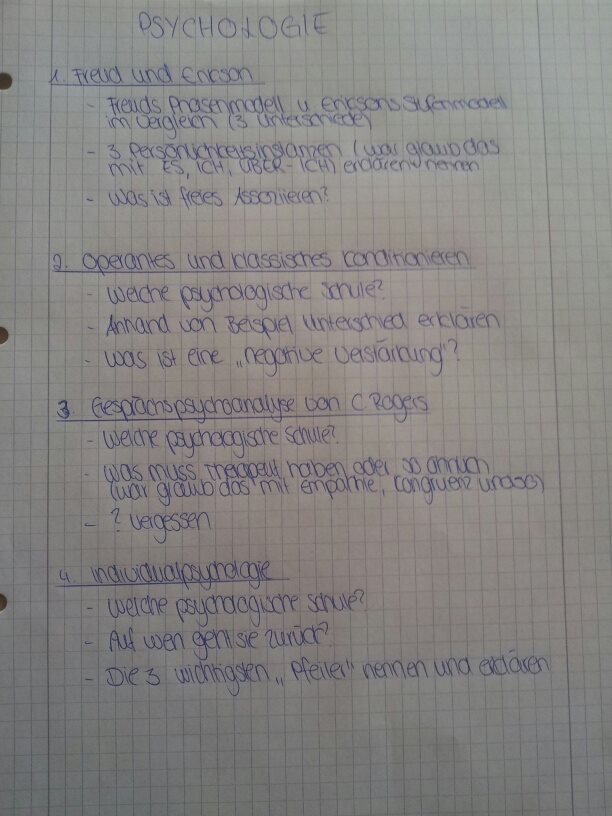 PSYCHOLOGIE
1. Freud und Erikson
- Freuds Phasenmodell u. Eriksons Stufenmodell
im Vergleich (3 Unterschiede)
- 3 Persönlichkeitsinstanzen (war glaub das
mit ES, ICH, ÜBER-ICH) erklären + nennen
- Was ist freies Assoziieren?
2. Operantes und klassisches Konditionieren
- Welche psychologische Schule?
- Anhand von Beispiel Unterschied erklären
- Was ist eine „negative Verstärkung"?
3. Gesprächspsychoanalyse von C. Rogers
- Welche psychologische Schule?
- Was muss Therapeut haben oder so ähnlich
(war glaub das mit Empathie, Kongruenz und so)
- ? vergessen
4. Individualpsychologie
- Welche psychologische Schule?
- Auf wen geht sie zurück?
- Die 3 wichtigsten „Pfeiler" nennen und erklären